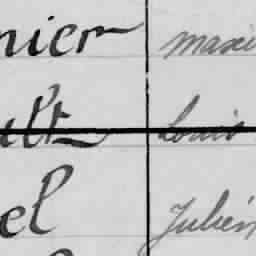 nier Maxi
ult Louis
el Julien